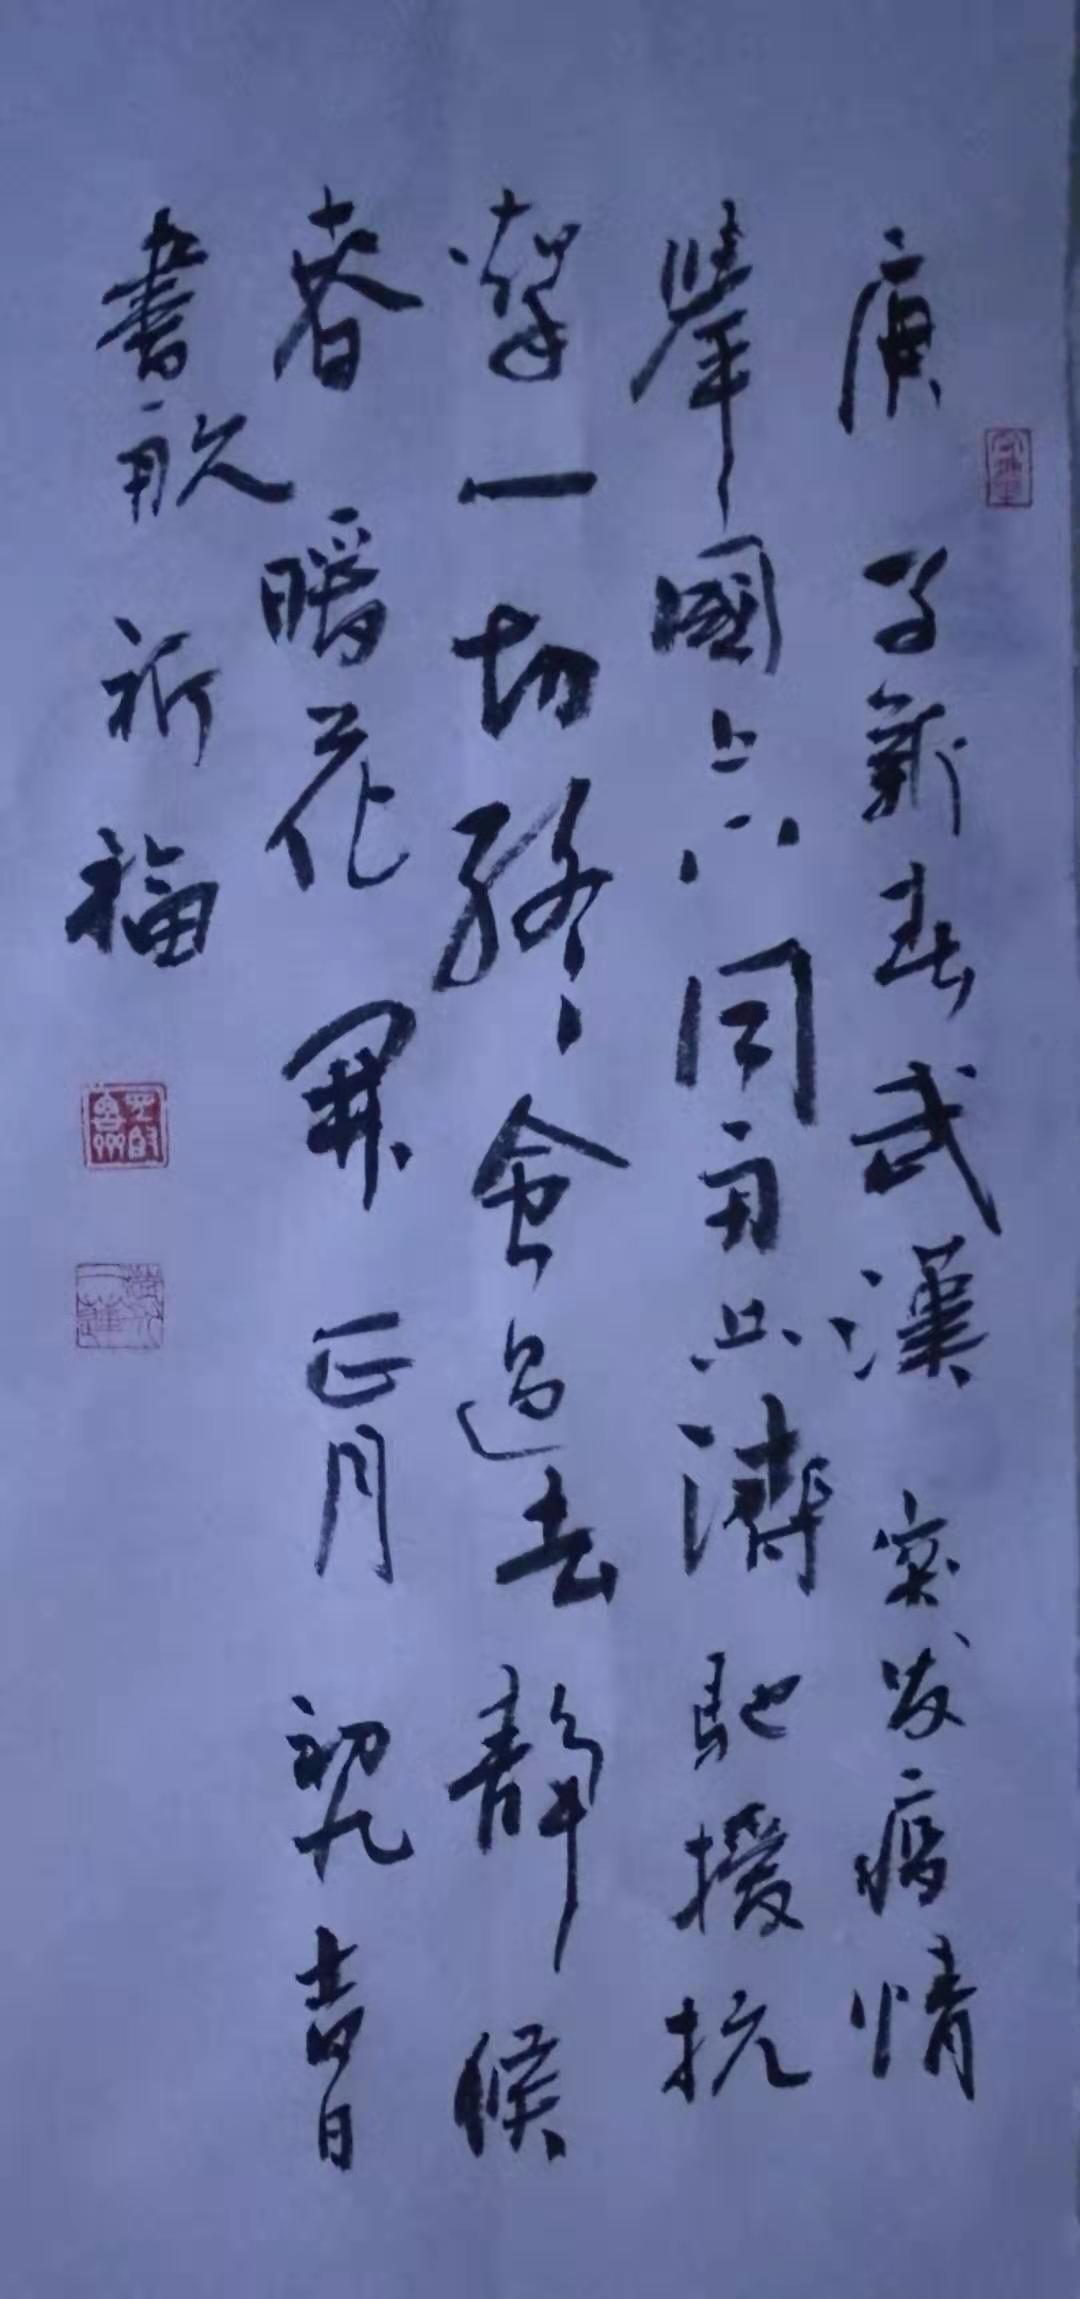 庚子新春武漢突发疫情
舉國上下同舟共濟馳援抗
擊一切終會過去靜候
春暖花開正月初九吉日
書祈福